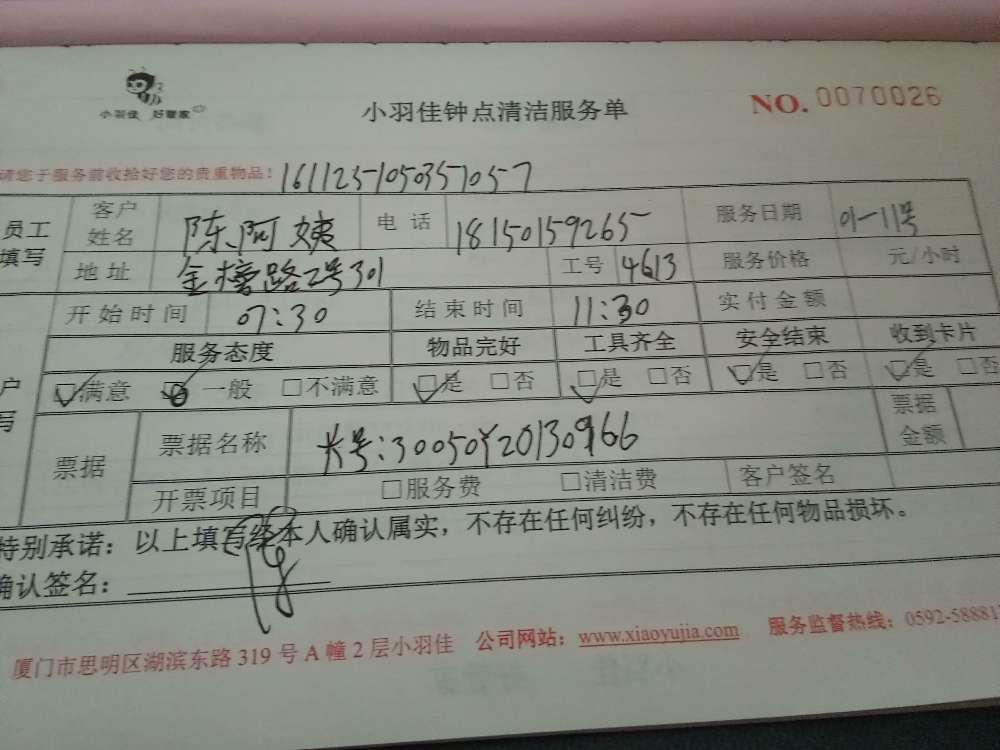 小羽佳 好管家
小羽佳钟点清洁服务单
NO.0070026
请您于服务前收拾好您的贵重物品！ 161125-105035-105-7
员工填写 客户姓名 陈阿姨 电话 18150159265 服务日期 01-11号
地址 金榜路2号301 工号 4613 服务价格 元/小时
开始时间 07:30 结束时间 11:30 实付金额
服务态度 物品完好 工具齐全 安全结束 收到卡片
☑满意 ☑一般 □不满意 ☑是 □否 ☑是 □否 ☑是 □否 ☑是 □否
户写
票据 票据名称 卡号:30050Y20130966 票据金额
开票项目 □服务费 □清洁费 客户签名
特别承诺：以上填写经本人确认属实，不存在任何纠纷，不存在任何物品损坏。
确认签名：
厦门市思明区湖滨东路319号A幢2层小羽佳 公司网站：www.xiaoyujia.com 服务监督热线：0592-588817